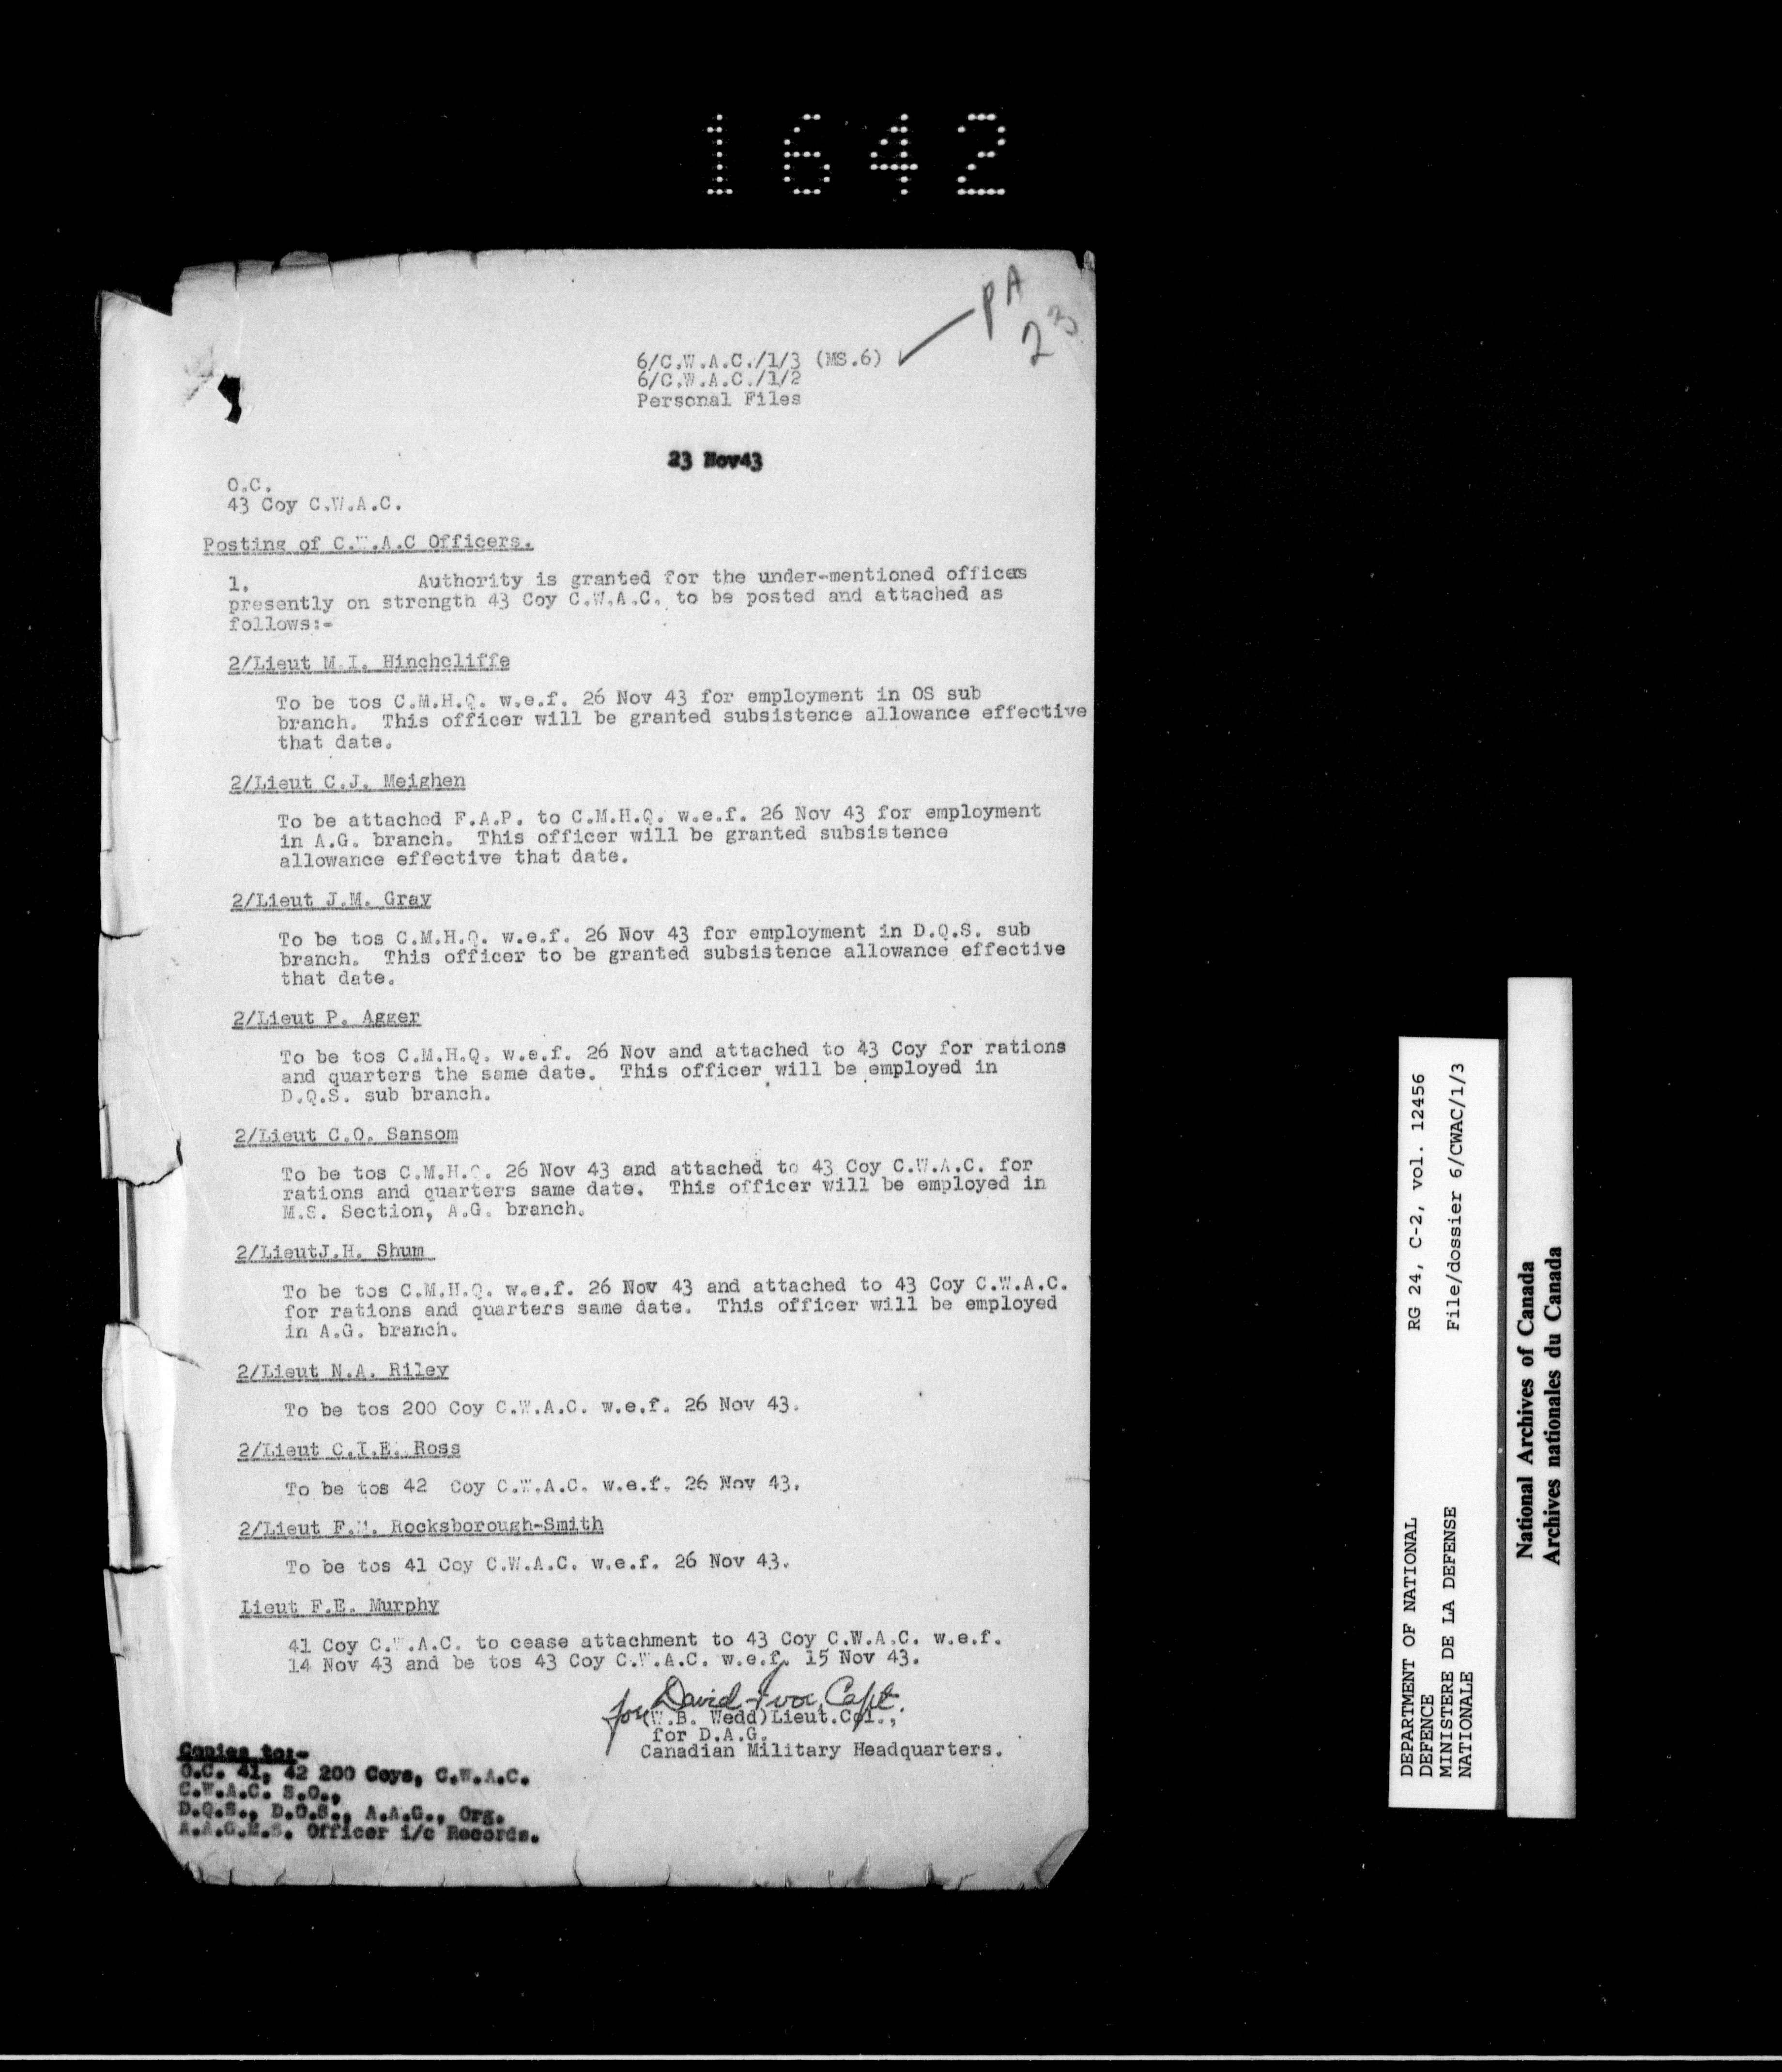 1642
PA
23
6/C.W.A.C./1/3 (MS.6)
6/C.W.A.C./1/2
Personal Files
23 Nov43
O.C.
43 Coy C.W.A.C.
Posting of C.W.A.C Officers.
1. Authority is granted for the under-mentioned offices
presently on strength 43 Coy C.W.A.C. to be posted and attached as
follows:-
2/Lieut M.I. Hinchcliffe
To be tos C.M.H.Q. w.e.f. 26 Nov 43 for employment in OS sub
branch. This officer will be granted subsistence allowance effective
that date.
2/Lieut C.J. Meighen
To be attached F.A.P. to C.M.H.Q. w.e.f. 26 Nov 43 for employment
in A.G. branch. This officer will be granted subsistence
allowance effective that date.
2/Lieut J.M. Gray
To be tos C.M.H.Q. w.e.f. 26 Nov 43 for employment in D.Q.S. sub
branch. This officer to be granted subsistence allowance effective
that date.
2/Lieut P. Agger
To be tos C.M.H.Q. w.e.f. 26 Nov and attached to 43 Coy for rations
and quarters the same date. This officer will be employed in
D.Q.S. sub branch.
2/Lieut C.O. Sansom
To be tos C.M.H.Q. 26 Nov 43 and attached to 43 Coy C.W.A.C. for
rations and quarters same date. This officer will be employed in
M.S. Section, A.G. branch.
2/LieutJ.H. Shum
To be tos C.M.H.Q. w.e.f. 26 Nov 43 and attached to 43 Coy C.W.A.C.
for rations and quarters same date. This officer will be employed
in A.G. branch.
2/Lieut N.A. Riley
To be tos 200 Coy C.W.A.C. w.e.f. 26 Nov 43.
2/Lieut C.I.E. Ross
To be tos 42 Coy C.W.A.C. w.e.f. 26 Nov 43.
2/Lieut F.M. Rocksborough-Smith
To be tos 41 Coy C.W.A.C. w.e.f. 26 Nov 43.
Lieut F.E. Murphy
41 Coy C.W.A.C. to cease attachment to 43 Coy C.W.A.C. w.e.f.
14 Nov 43 and be tos 43 Coy C.W.A.C. w.e.f. 15 Nov 43.
David Ivor Capt.
for (W.B. Wedd)Lieut.Col.,
for D.A.G.
Canadian Military Headquarters.
Copies to:-
O.C. 41, 42 200 Coys, C.W.A.C.
C.W.A.C. S.O.,
D.Q.S., D.O.S., A.A.G., Org.
A.A.G.M.S. Officer i/c Records.
DEPARTMENT OF NATIONAL RG 24, C-2, vol. 12456
DEFENCE
MINISTERE DE LA DEFENSE File/dossier 6/CWAC/1/3
NATIONALE
National Archives of Canada
Archives nationales du Canada